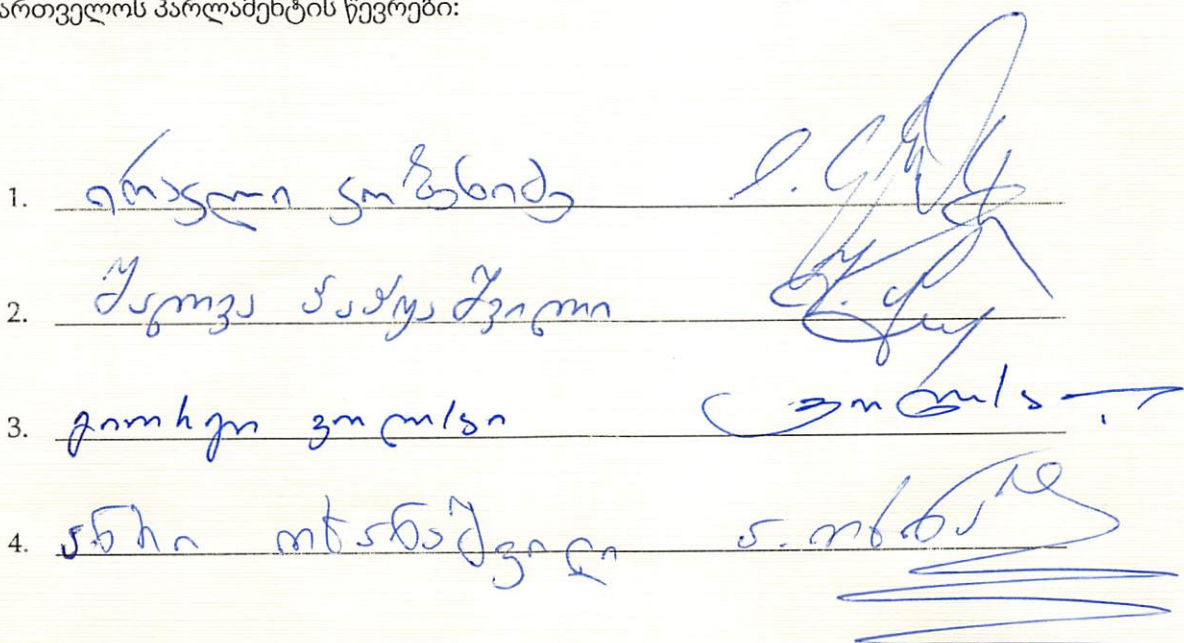 ართველოს პარლამენტის წევრები:
1. ირაკლი კობახიძე
2. შალვა პაპუაშვილი
3. გიორგი ვოლსკი
4. ანრი ოხანაშვილი ა. ოხანა